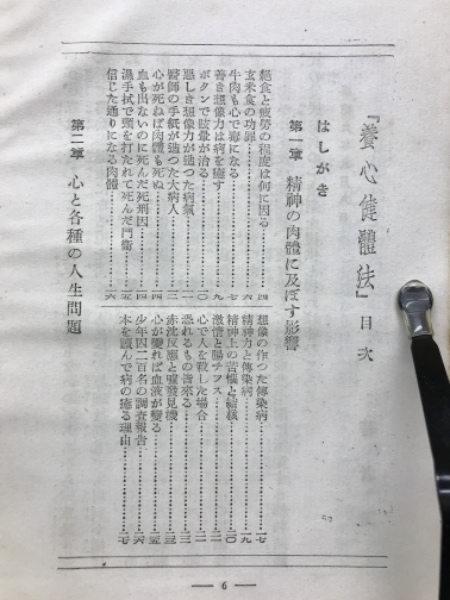 『養心健體法』目次
はしがき
第一章 精神の肉體に及ぼす影響
絕食と疲勞の程度は何に因る……四
玄米食の功罪……六
牛肉も心で毒になる……七
善き想像力は病を癒す……九
ボタンで眩暈が治る……一〇
惡しき想像力が造つた病氣……一一
醫師の手紙が造つた大病人……一二
心が死ねば肉體も死ぬ……一四
血も出ないのに死んだ死刑囚……一四
濡手拭で頸を打たれて死んだ門衞……一五
信じた通りになる肉體……一六
想像の作つた傳染病……一七
精神力と傳染病……一九
精神上の苦惱と結核……二〇
激情と腸チフス……二一
心で人を殺した場合……二一
恐れるもの皆來る……二三
赤沈反應と噓發見機……二三
心が變れば血液が變る……二五
少年囚二百名の調査報告……二六
本を讀んで病の癒る理由……二七
第二章 心と各種の人生問題
— 6 —